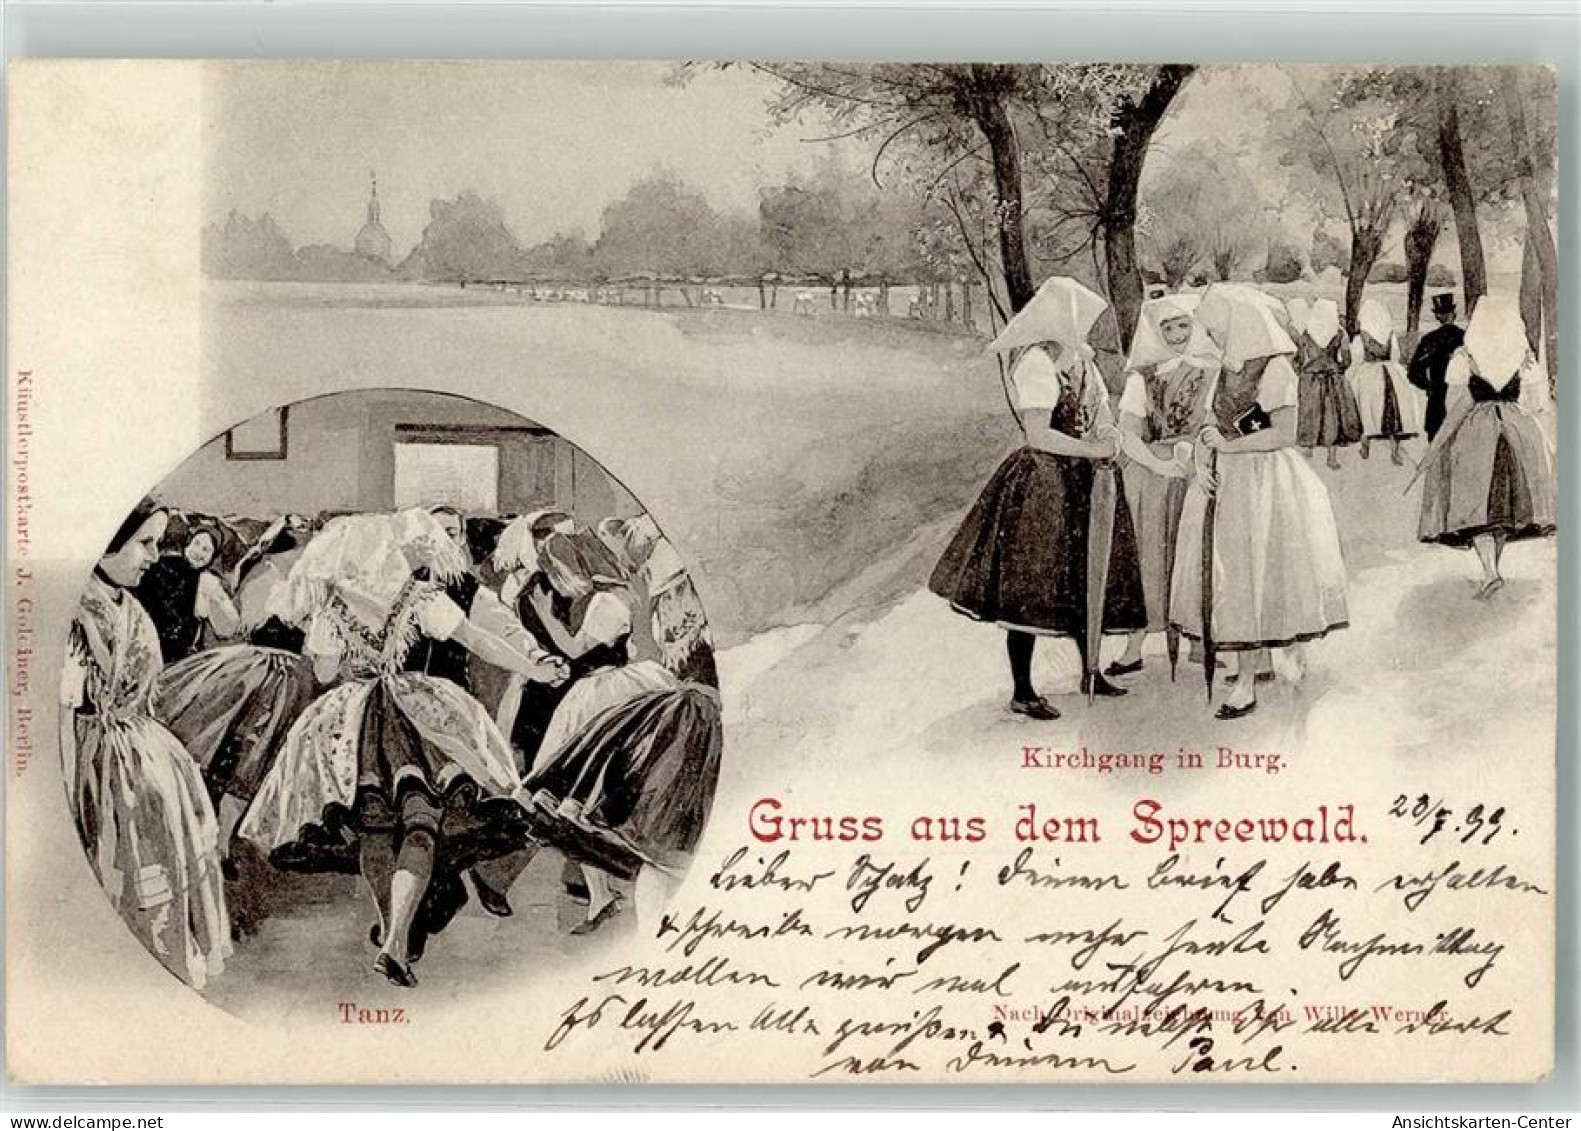 Künstlerpostkarte J. Goldiner, Berlin.
Tanz.
Kirchgang in Burg.
Gruss aus dem Spreewald.
28/7.99.
Lieber Schatz! Deinen Brief habe erhalten
& schreibe morgen mehr, heute Nachmittag
wollen wir mal ausfahren.
Es lassen Alle grüßen, Du nebst Ih alle dort
von Deinem Paul.
Nach Originalzeichnung von Willy Werner.
delcampe.net
Ansichtskarten-Center